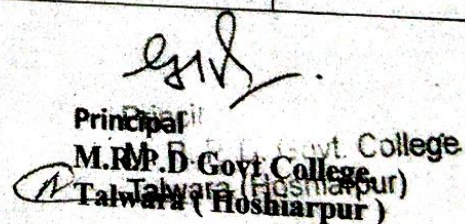 Principal
M.R.P.D Govt. College
Talwara ( Hoshiarpur )
Govt. College
Talwara (Hoshiarpur)